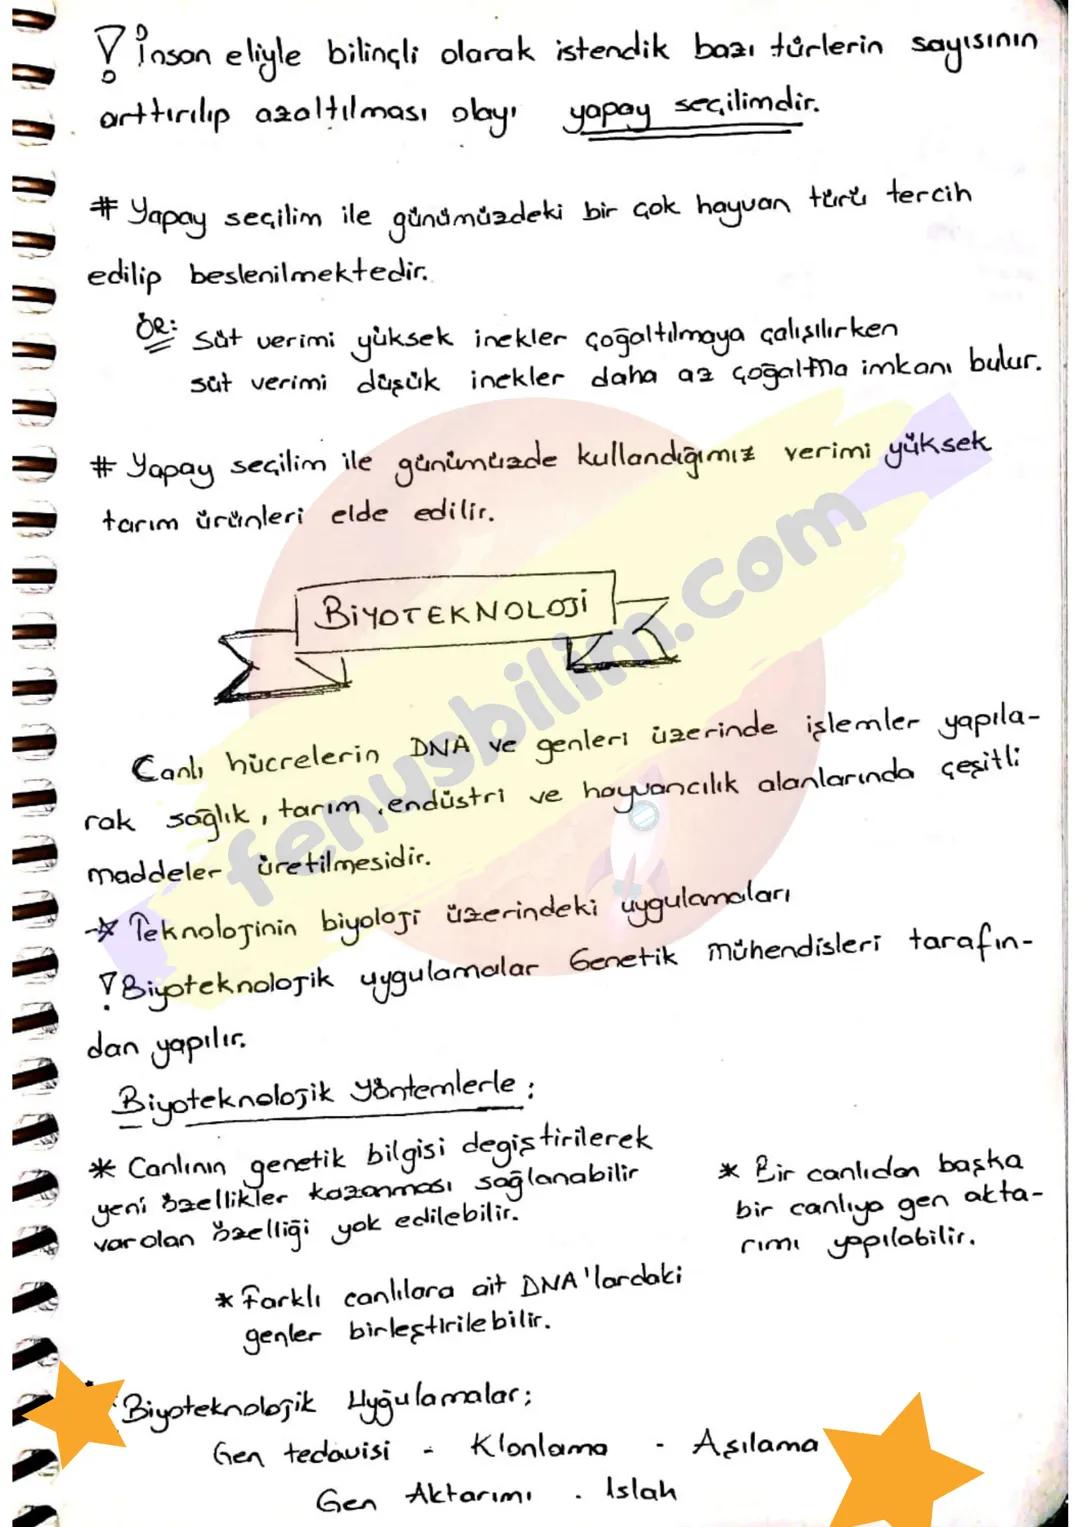 İnsan eliyle bilinçli olarak istendik bazı türlerin sayısının
arttırılıp azaltılması olayı yapay seçilimdir.
# Yapay seçilim ile günümüzdeki bir çok hayvan türü tercih
edilip beslenilmektedir.
ÖR: Süt verimi yüksek inekler çoğaltılmaya çalışılırken
süt verimi düşük inekler daha az çoğaltma imkanı bulur.
# Yapay seçilim ile günümüzde kullandığımız verimi yüksek
tarım ürünleri elde edilir.
BİYOTEKNOLOJİ
Canlı hücrelerin DNA ve genleri üzerinde işlemler yapıla-
rak sağlık, tarım, endüstri ve hayvancılık alanlarında çeşitli
maddeler üretilmesidir.
Teknolojinin biyoloji üzerindeki uygulamaları
Biyoteknolojik uygulamalar Genetik mühendisleri tarafın-
dan yapılır.
Biyoteknolojik Yöntemlerle:
* Canlının genetik bilgisi degiştirilerek
yeni özellikler kazanması sağlanabilir
var olan özelliği yok edilebilir.
* Bir canlıdan başka
bir canlıya gen akta-
rımı yapılabilir.
* Farklı canlılara ait DNA'lardaki
genler birleştirilebilir.
Biyoteknolojik Uygulamalar;
Gen tedavisi - Klonlama - Aşılama
Gen Aktarımı . Islah
fenusbilim.com